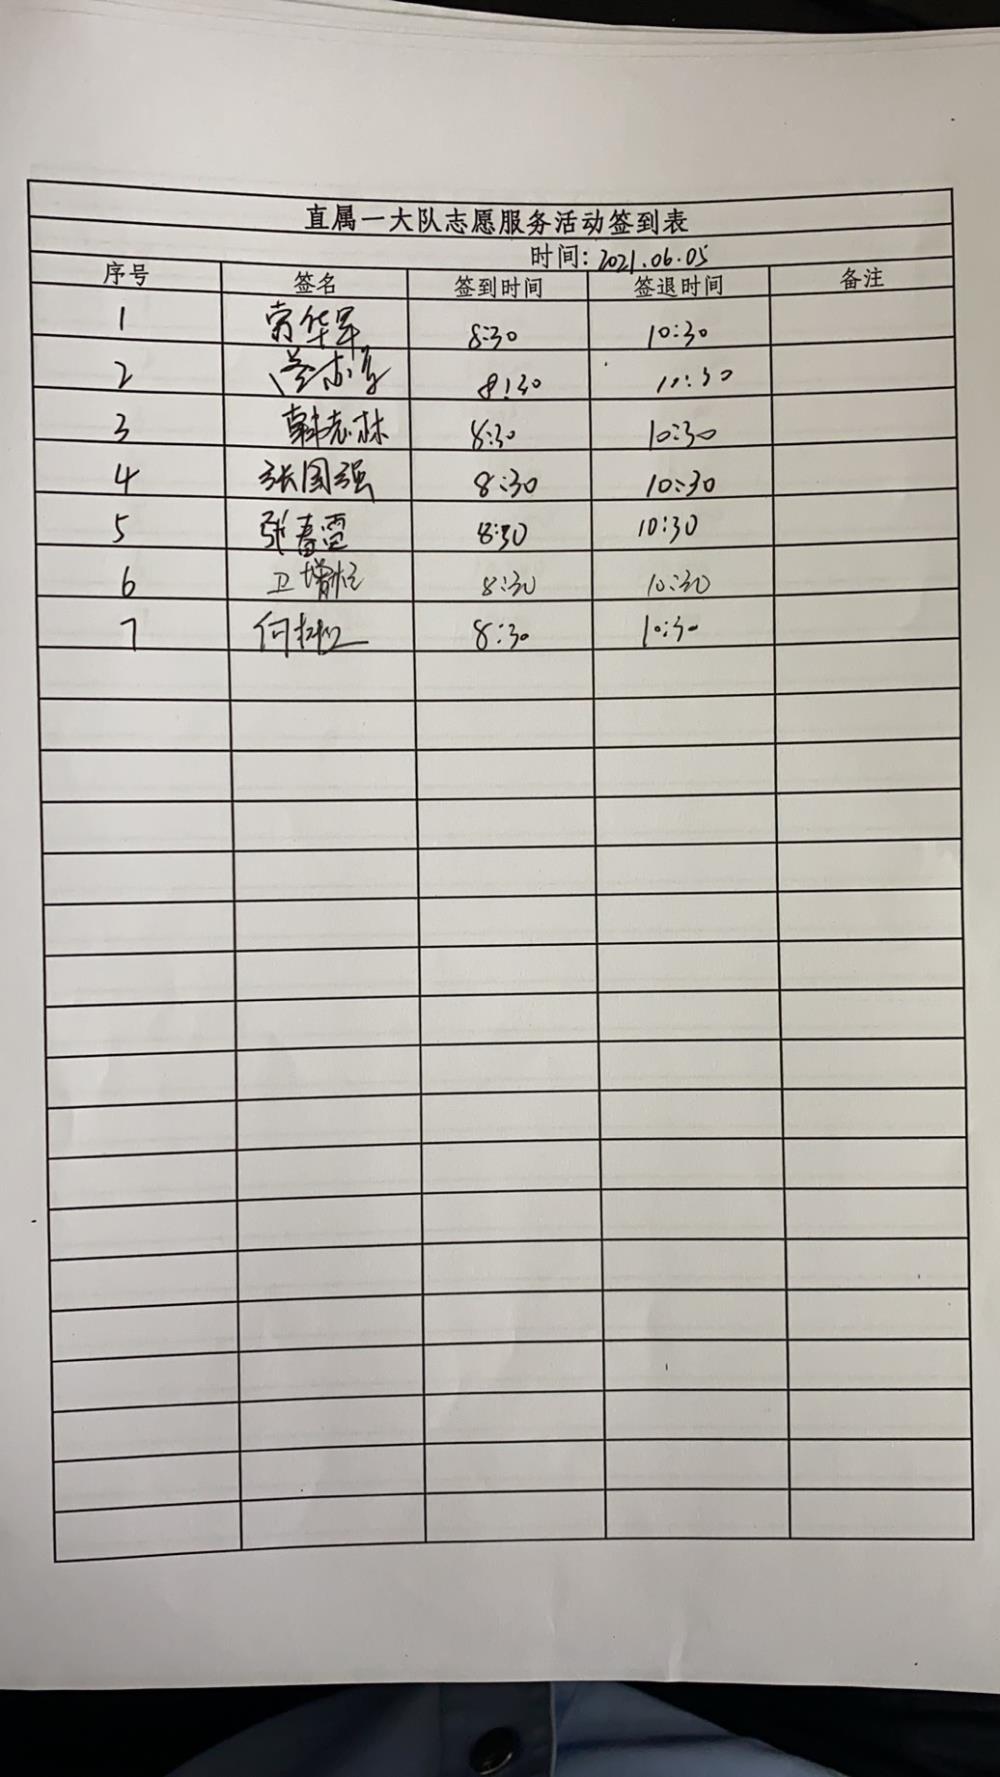 直属一大队志愿服务活动签到表
时间: 2021.06.05
序号 签名 签到时间 签退时间 备注
1 华军 8:30 10:30
2 8:30 10:30
3 韩志林 8:30 10:30
4 张国强 8:30 10:30
5 张春雷 8:30 10:30
6 卫增 8:30 10:30
7 何 8:30 10:30